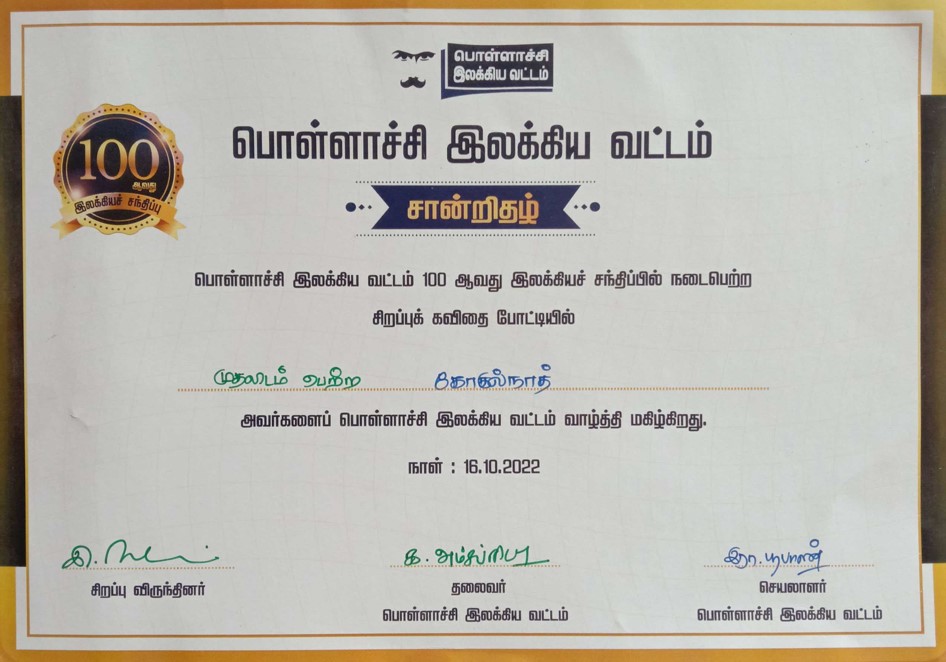 பொள்ளாச்சி
இலக்கிய வட்டம்
பொள்ளாச்சி இலக்கிய வட்டம்
100
ஆவது
இலக்கியச் சந்திப்பு
சான்றிதழ்
பொள்ளாச்சி இலக்கிய வட்டம் 100 ஆவது இலக்கியச் சந்திப்பில் நடைபெற்ற
சிறப்புக் கவிதை போட்டியில்
முதலிடம் பெற்ற
அவர்களைப் பொள்ளாச்சி இலக்கிய வட்டம் வாழ்த்தி மகிழ்கிறது.
நாள் : 16.10.2022
சிறப்பு விருந்தினர்
தலைவர்
பொள்ளாச்சி இலக்கிய வட்டம்
இரா. பூபாலன்
செயலாளர்
பொள்ளாச்சி இலக்கிய வட்டம்